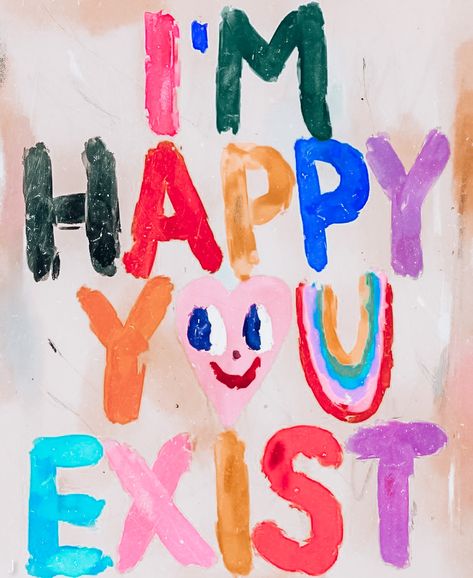 I'M
HAPPY
YOU
EXIST